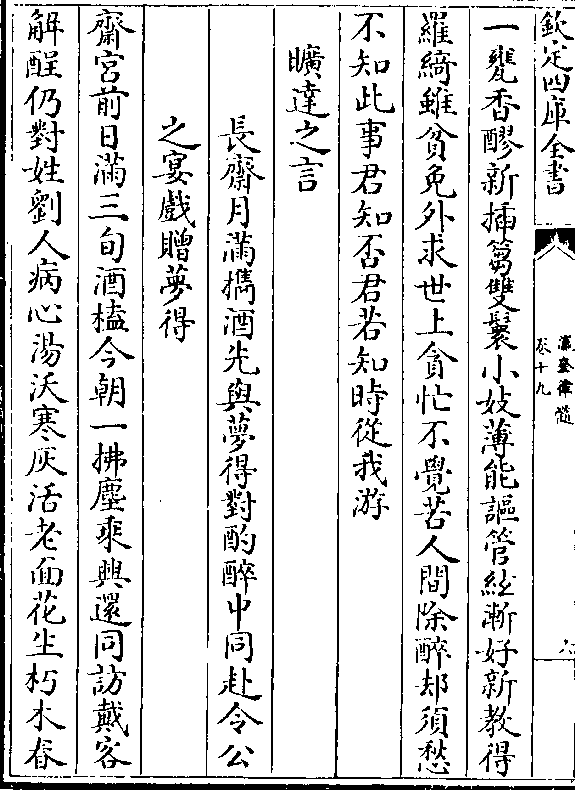 欽定四庫全書
瀛奎律髓
卷十九
一甕香醪新插篘雙鬟小妓薄能謳管絃漸好新教得
羅綺雖貧免外求世上貪忙不覺苦人間除醉却須愁
不知此事君知否君若知時從我游
曠達之言
長齋月滿擕酒先與夢得對酌醉中同赴令公
之宴戲贈夢得
齋宮前日滿三旬酒榼今朝一拂塵乘興還同訪戴客
解酲仍對姓劉人病心湯沃寒灰活老面花生朽木春